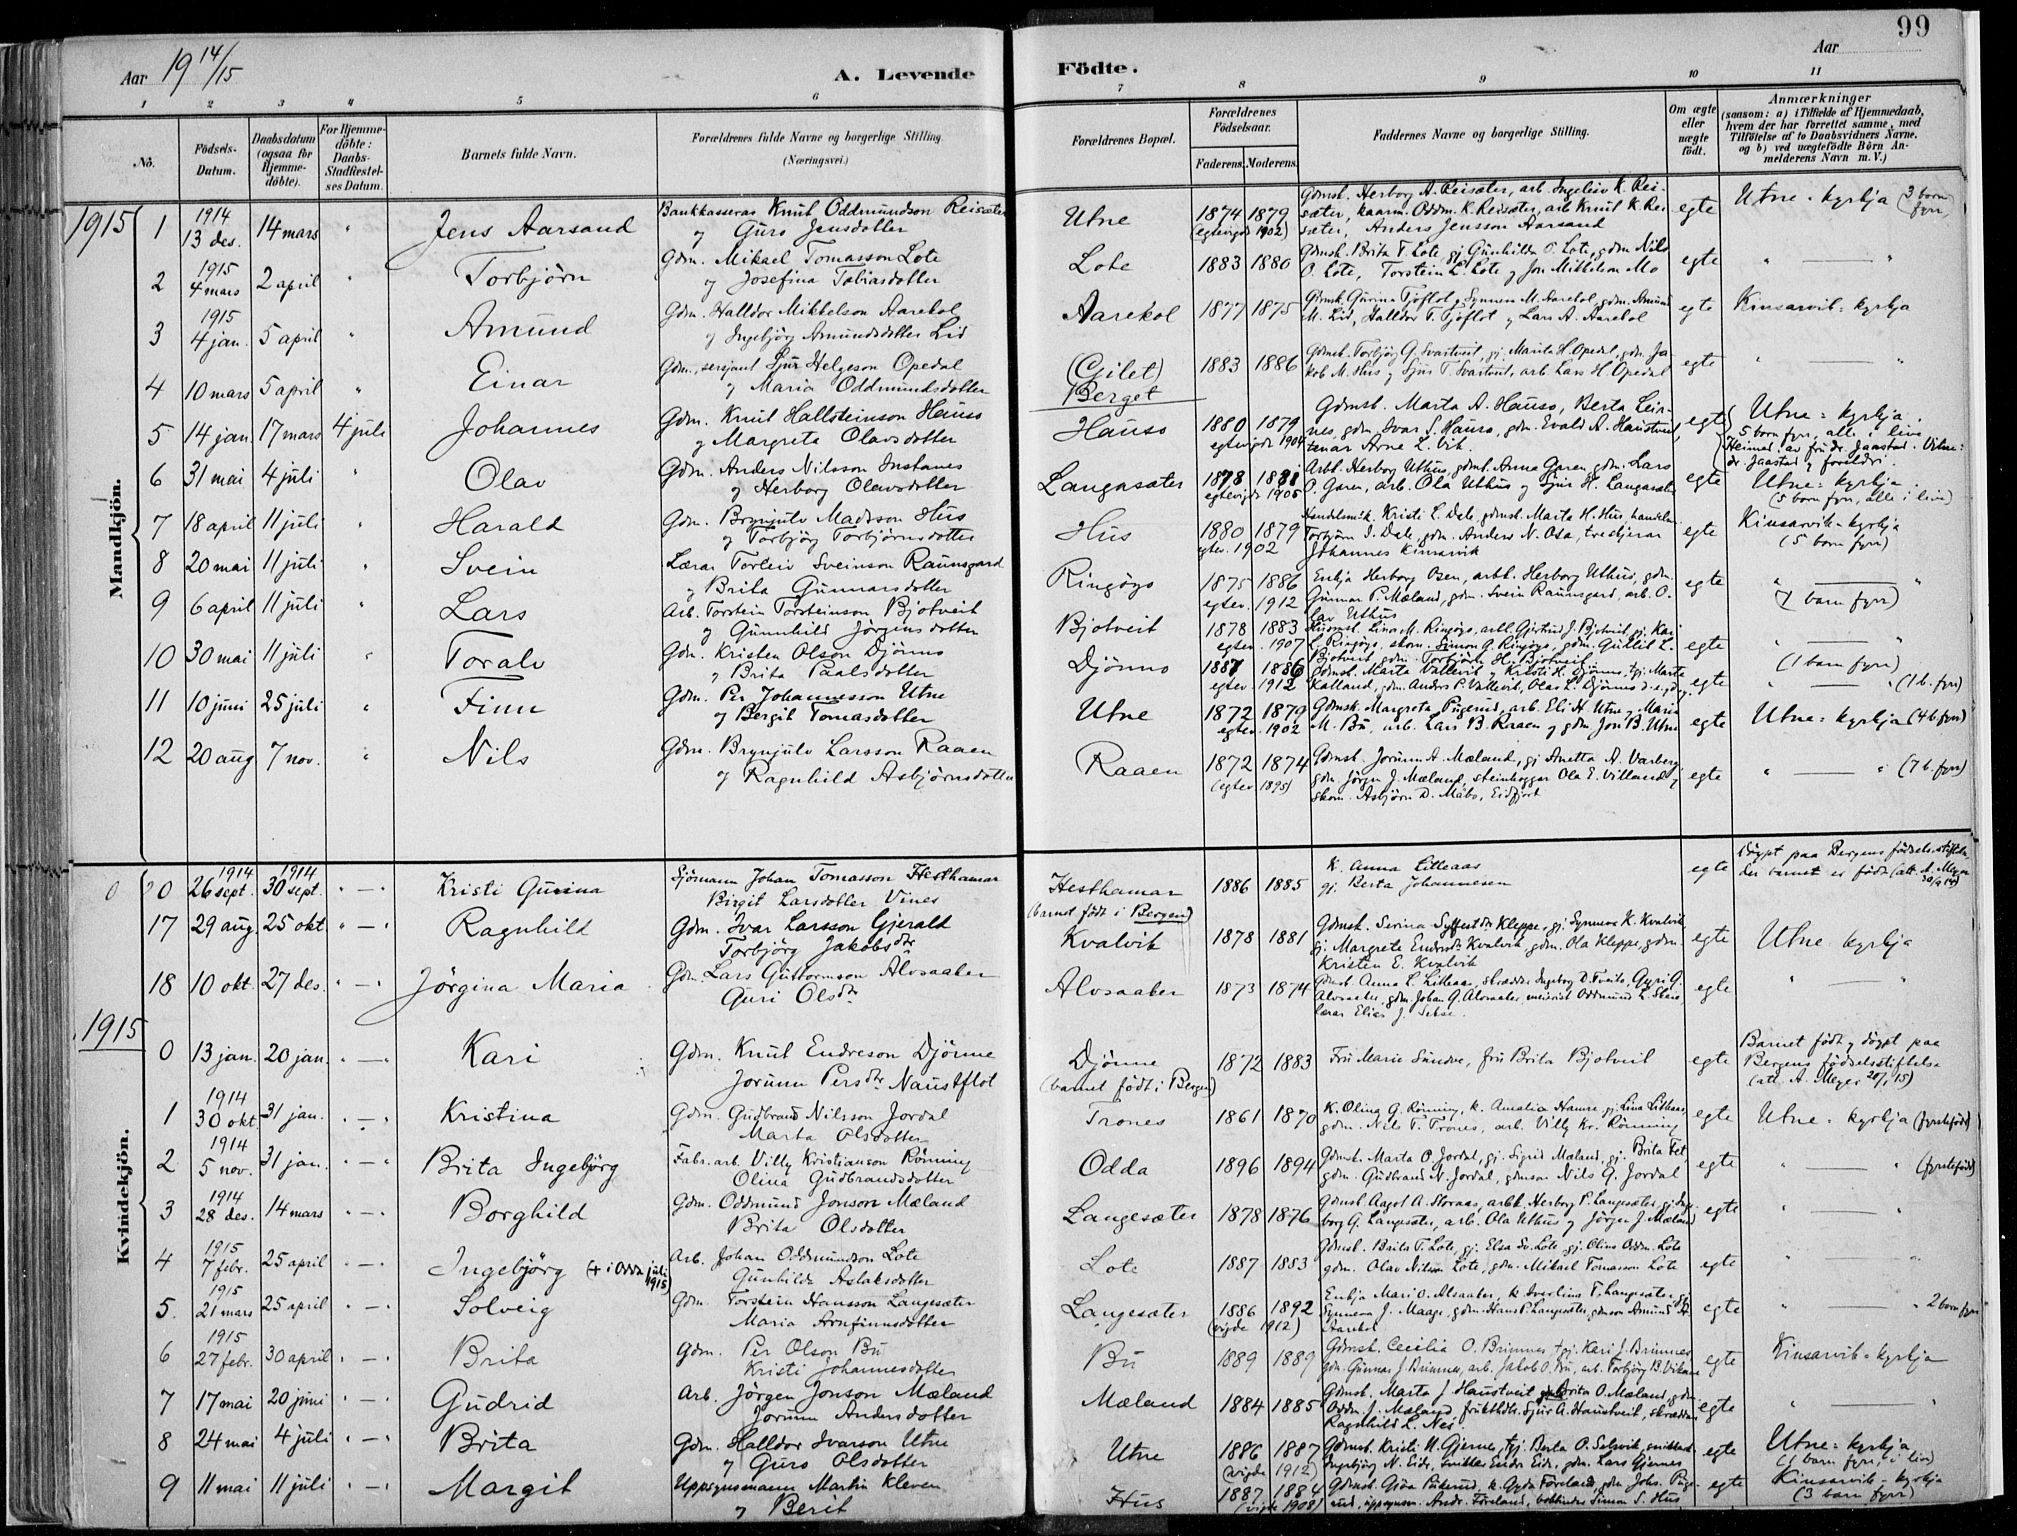 99
Aar 19 14/15
A. Levende Födte.
Aar
1 2 3 4 5 6 7 8 9 10 11
No.
Födsels-Datum.
Daabsdatum (ogsaa for Hjemme-döbte).
For Hjemme-döbte: Daabs-Stadfæstel-ses Datum.
Barnets fulde Navn.
Forældrenes fulde Navne og borgerlige Stilling. (Næringsvei.)
Forældrenes Bopæl.
Forældrenes Födselsaar.
Faderens. Moderens.
Faddernes Navne og borgerlige Stilling.
Om ægte eller uægte födt.
Anmærkninger
(saasom: a) i Tilfælde af Hjemmedaab, hvem der har forrettet samme, med Tilföielse af to Daabsvidners Navne. og b) ved uægtefödte Börn An-melderens Navn m. V.)
Mandkjön.
1915 1 1914 13 des. 14 mars " Jens Aarsand Bankkasserar Knut Oddmundson Reisæter y Guro Jensdotter Utne 1874 1879 (egtevigde 1902) Gdmsk. Herborg A. Reisæter, arb. Ingeleiv K. Reisæter, kaarm. Oddm. K. Reisæter, arb Knut K. Reisæter, Anders Jensson Aarsand egte Utne-kyrkja (3 born fyrr)
2 1915 4 mars 2 april " Torbjörn Gdm. Mikael Tomasson Lote y Josefina Tobiasdotter Lote 1883 1880 Gdmsk. Brita T. Lote, gj Gunhilda O. Lote, gdm Nils O. Lote, Torstein L. Lote y Jon Mikkelson Mo egte " — "
3 1915 4 jan. 5 april " Amund Gdm. Halldor Mikkelson Aarekol y Ingebjörg Amundsdotter Lid Aarekol 1877 1875 Gdmsk. Gurina Tjoflot, Synneva M. Aarekol, gdm. Amund M. Lid, Halldor T. Tjoflot y Lars A. Aarekol egte Kinsarvik-kyrkja
4 10 mars 5 april " Einar Gdm., sersjant Sjur Helgeson Opedal y Maria Oddmundsdotter (Gilet) Berget 1883 1886 Gdmsk. Torbjörg G. Svartveit, gj. Marita H. Opedal, gdm. Jakob M. Hus y Sjur T. Svartveit, arb. Lars H. Opedal egte " — "
5 14 jan. 17 mars 4 juli Johannes Gdm. Knut Hallsteinson Hauso y Margreta Olavsdotter Hauso 1880 1879 egtevigde 1904 Gdmsk. Marta A. Hauso, Berta Leirnes, gdm. Ivar S. Hauso, gdm. Evald A. Haustveit, tenar Arne L. Vik. egte Utne-kyrkja. 5 born fyrr, alle i live Heimed. av frú dr. Jaastad. Vitne: dr. Jaastad y foreldri.
6 31 mai 4 juli " Olav Gdm. Anders Nilsson Instanes y Herborg Olavsdotter Langasæter 1878 1881 egtevigde 1905 Arbk. Herborg Uthus, gdmsk. Anna Garen, gdm. Lars O. Garen, arb. Ola Uthus y Sjur H. Langasæter egte Utne-kyrkja. (5 born fyrr, alle i live)
7 18 april 11 juli " Harald Gdm. Brynjulv Madsson Hus y Torbjörg Torbjörnsdotter Hus 1880 1879 egtev. 1902 Handelsmk. Kristi L. Dale, gdmsk. Marta H. Hus, handelsm. Torbjörn S. Dale, gdm. Anders N. Osa, treskjerar Johannes Kinsarvik egte Kinsarvik-kyrkja (5 born fyrr)
8 20 mai 11 juli " Svein Lærar Torleiv Sveinson Raunsgard y Brita Gunnarsdotter Ringöyo 1875 1886 egtev. 1912 Enkja Herborg Osen, arbk. Herborg Uthus, gdm. Gunnar P. Mæland, gdm. Svein Raunsgard, arb. Olav Uthus egte " — " (7 barn fyrr)
9 6 april 11 juli " Lars Arb. Torstein Torsteinson Bjotveit y Gunnhild Jörgensdotter Bjotveit 1878 1883 egtev. 1907 Husmsk. Lina M. Ringöyo, arbk. Gjertrud J. Bjotveit, gj. Kari L. Ringöyo, skom. Simon G. Ringöyo, gdm. Guttil L. Bjotveit, gdm. Torbjörn H. Bjotveit egte " — "
10 30 mai 11 juli " Toralv Gdm. Kristen Olson Djönno y Brita Paalsdotter Djönno 1887 1886 egtev. 1912 Gdmsk. Marta Vallevik y Kristi K. Djönno, tgj Marta Kalland, gdm. Anders P. Vallevik, Olav L. Djönno egte (1 barn fyrr)
11 10 juni 25 juli " Finn Gdm. Per Johannesson Utne y Bergit Tomasdotter Utne 1872 1879 egtev. 1902 Gdmsk. Margreta Pugerud, arb. Eli H. Utne y Maria M. Bu, arb. Lars B. Raaen y gdm. Jon B. Utne egte Utne-kyrkja (4 b. fyrr)
12 20 aug 7 nov. " Nils Gdm. Brynjulv Larsson Raaen y Ragnhild Asbjörnsdotter Raaen 1872 1874 (egtev. 1895) Gdmsk. Jorunn A. Mæland, gj Anetta A. Varberg, gdm. Jörgen J. Mæland, steinhoggar Ola E. Villand y skom. Asbjörn D. Mäbo, Eidfjord egte " — " (7 b. fyrr)
Kvindekjön.
0 1914 26 sept. 1914 30 sept. " — " Kristi Gurina Sjömann Johan Tomasson Hesthamar Birgit Larsdotter Vines Hesthamar (barnet födt i Bergen) 1886 1885 K. Anna Lilleaas gj. Berta Johannesen egte Döypt paa Bergens fødselsstiftelse der barnet er født (att. A. Meyer 30/9 14)
17 29 aug. 25 okt. " — " Ragnhild Gdm. Ivar Larsson Gjerald Torbjörg Jakobsdr Kvalvik 1878 1881 Gdmsk. Serina Sjffertsdr Kleppe, gj. Synneva K. Kvalvik, gj. Margreta Endresdr Kvalvik, gdm. Ola Kleppe, gdm. Kristen E. Kvalvik egte Utne kyrkja
18 10 okt. 27 des. " — " Jörgina Maria Gdm. Lars Guttormson Alvsaaker Guri Olsdr Alvsaaker 1873 1874 Gdmsk Anna L. Lilleaas, skrædder Ingeborg D. Tveito, Gyri G. Alvsaaker, gdm. Johan G. Alvsaaker, meierist Oddmund L. Steine, lærar Elias J. Sekse. egte " — "
1915 0 13 jan. 20 jan. " — " Kari Gdm. Knut Endreson Djönne Jorunn Persdr Naustflot Djönne (barnet födt i Bergen) 1872 1883 Fru Marie Sundve, fru Brita Bjotveit egte Barnet födt y döypt paa Bergens födselsstiftelse (att. A. Meyer 20/1 15)
1 1914 30 okt 31 jan. " — " Kristina Gdm. Gudbrand Nilsson Jordal Marta Olsdotter Trones 1861 1870 K. Olina G. Rönning, k. Amalia Hamre, gj. Lina Lilleaas, gdm. Nils T. Trones, arb. Villy Kr. Rönning egte Utne-kyrkja (fyrstefödt)
2 1914 5 nov. 31 jan. " — " Brita Ingebjörg Fabr. arb. Villy Kristianson Rönning Olina Gudbrandsdotter Odda 1896 1894 Gdmsk. Marta O. Jordal, gj. Sigrid Mæland, gj. Brita Fet, gdm. Gudbrand N. Jordal, gdmson Nils G. Jordal egte " " (fyrstefödt)
3 1914 28 des. 14 mars " — " Borghild Gdm. Oddmund Jonson Mæland Brita Olsdotter Langesæter 1878 1876 Gdmsk. Aagot A. Storaas, arbk. Herborg P. Langesæter, gj. Ingeborg G. Langesæter, arb. Ola Uthus y Jörgen J. Mæland egte " — "
4 1915 7 febr. 25 april " — " Ingebjörg (+ i Odda juli 1915) Arb. Johan Oddmundson Lote Gunhilda Aslaksdotter Lote 1887 1883 Gdmsk. Brita T. Lote, gj. Elsa Sv. Lote gj. Olina Oddm. Lote gdm. Olav Nilsson Lote, gdm. Mikael Tomasson Lote egte " — "
5. 1915 21 mars 25 april " — " Solveig Gdm. Torstein Hansson Langesæter Maria Arnfinnsdotter Langesæter 1886 1892 (vigde 1912) Enkja Mari O. Alvsaaker, k. Sverlina T. Langesæter, gj. Synneva J. Maage, gdm. Hans P. Langesæter, gdmson Amund H. Aarekol egte " — " 2 born fyrr
6 1915 27 febr. 30 april " — " Brita Gdm. Per Olson Bu Kristi Johannesdotter Bu 1889 1889 Gdmsk. Cecilia O. Brimnes, tgj. Kari J. Brimnes gdm. Gunnar J. Brimnes, arb. Jakob O. Bu, arb. Torbjörg B. Vikane egte Kinsarvik-kyrkja
7 17 mai 20 juni " — " Gudrid Arb. Jörgen Jonson Mæland Jorunn Andersdotter Mæland 1884 1885 Gdmsk. Marta J. Haustveit, Brita O. Mæland, gdm. Oddm. J. Mæland, frukthdlr. Sjur A. Haustveit, skrædder Ragnhild L. Nes egte " — "
8 24 mai 4 juli " — " Brita Gdm. Halldor Ivarson Utne y Guro Olsdotter Utne 1886 1887 (vigde 1912) Gdmsk. Kristi N. Gjernes, tgj. Berta O. Selsvik, Ingebjörg N. Eide, snikkar Endre Eide, gdm. Lars Gjernes egte Utne-kyrkja (1 barn fyrr, i live)
9 11 mai 11 juli " — " Margit Uppsynsmann Martin Kleven y Berit Hus 1887 1884 vigde 1908 Gdmsk. Gura Puterud, k. Gyda Föreland, gdm. Johs. Pugerud, uppsynsm. Andr. Föreland, bokbindar Simon S. Hus egte Kinsarvik-kyrkja (3 born fyrr)